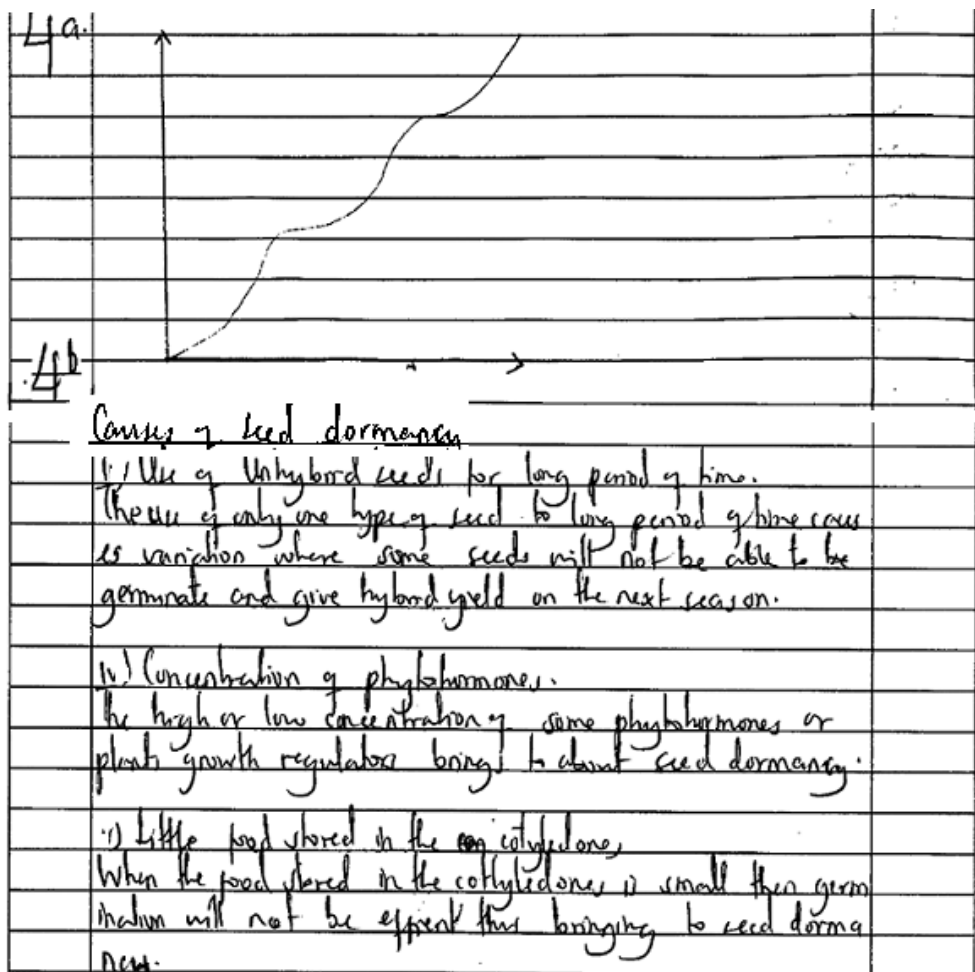 4a.
4b
Causes of seed dormancy
i.) Use of Unhybrid seeds for long period of time.
The use of only one type of seed to long period of time caus
es variation where some seeds will not be able to be
germinate and give hybrid yield on the next season.
iv) Concentration of phytohormones.
The high or low concentration of some phytohormones or
plants growth regulators brings to about seed dormancy.
i) Little food stored in the cotyledones
When the food stored in the cotyledones is small then germ
ination will not be effient thus bringing to seed dorma
ncy.